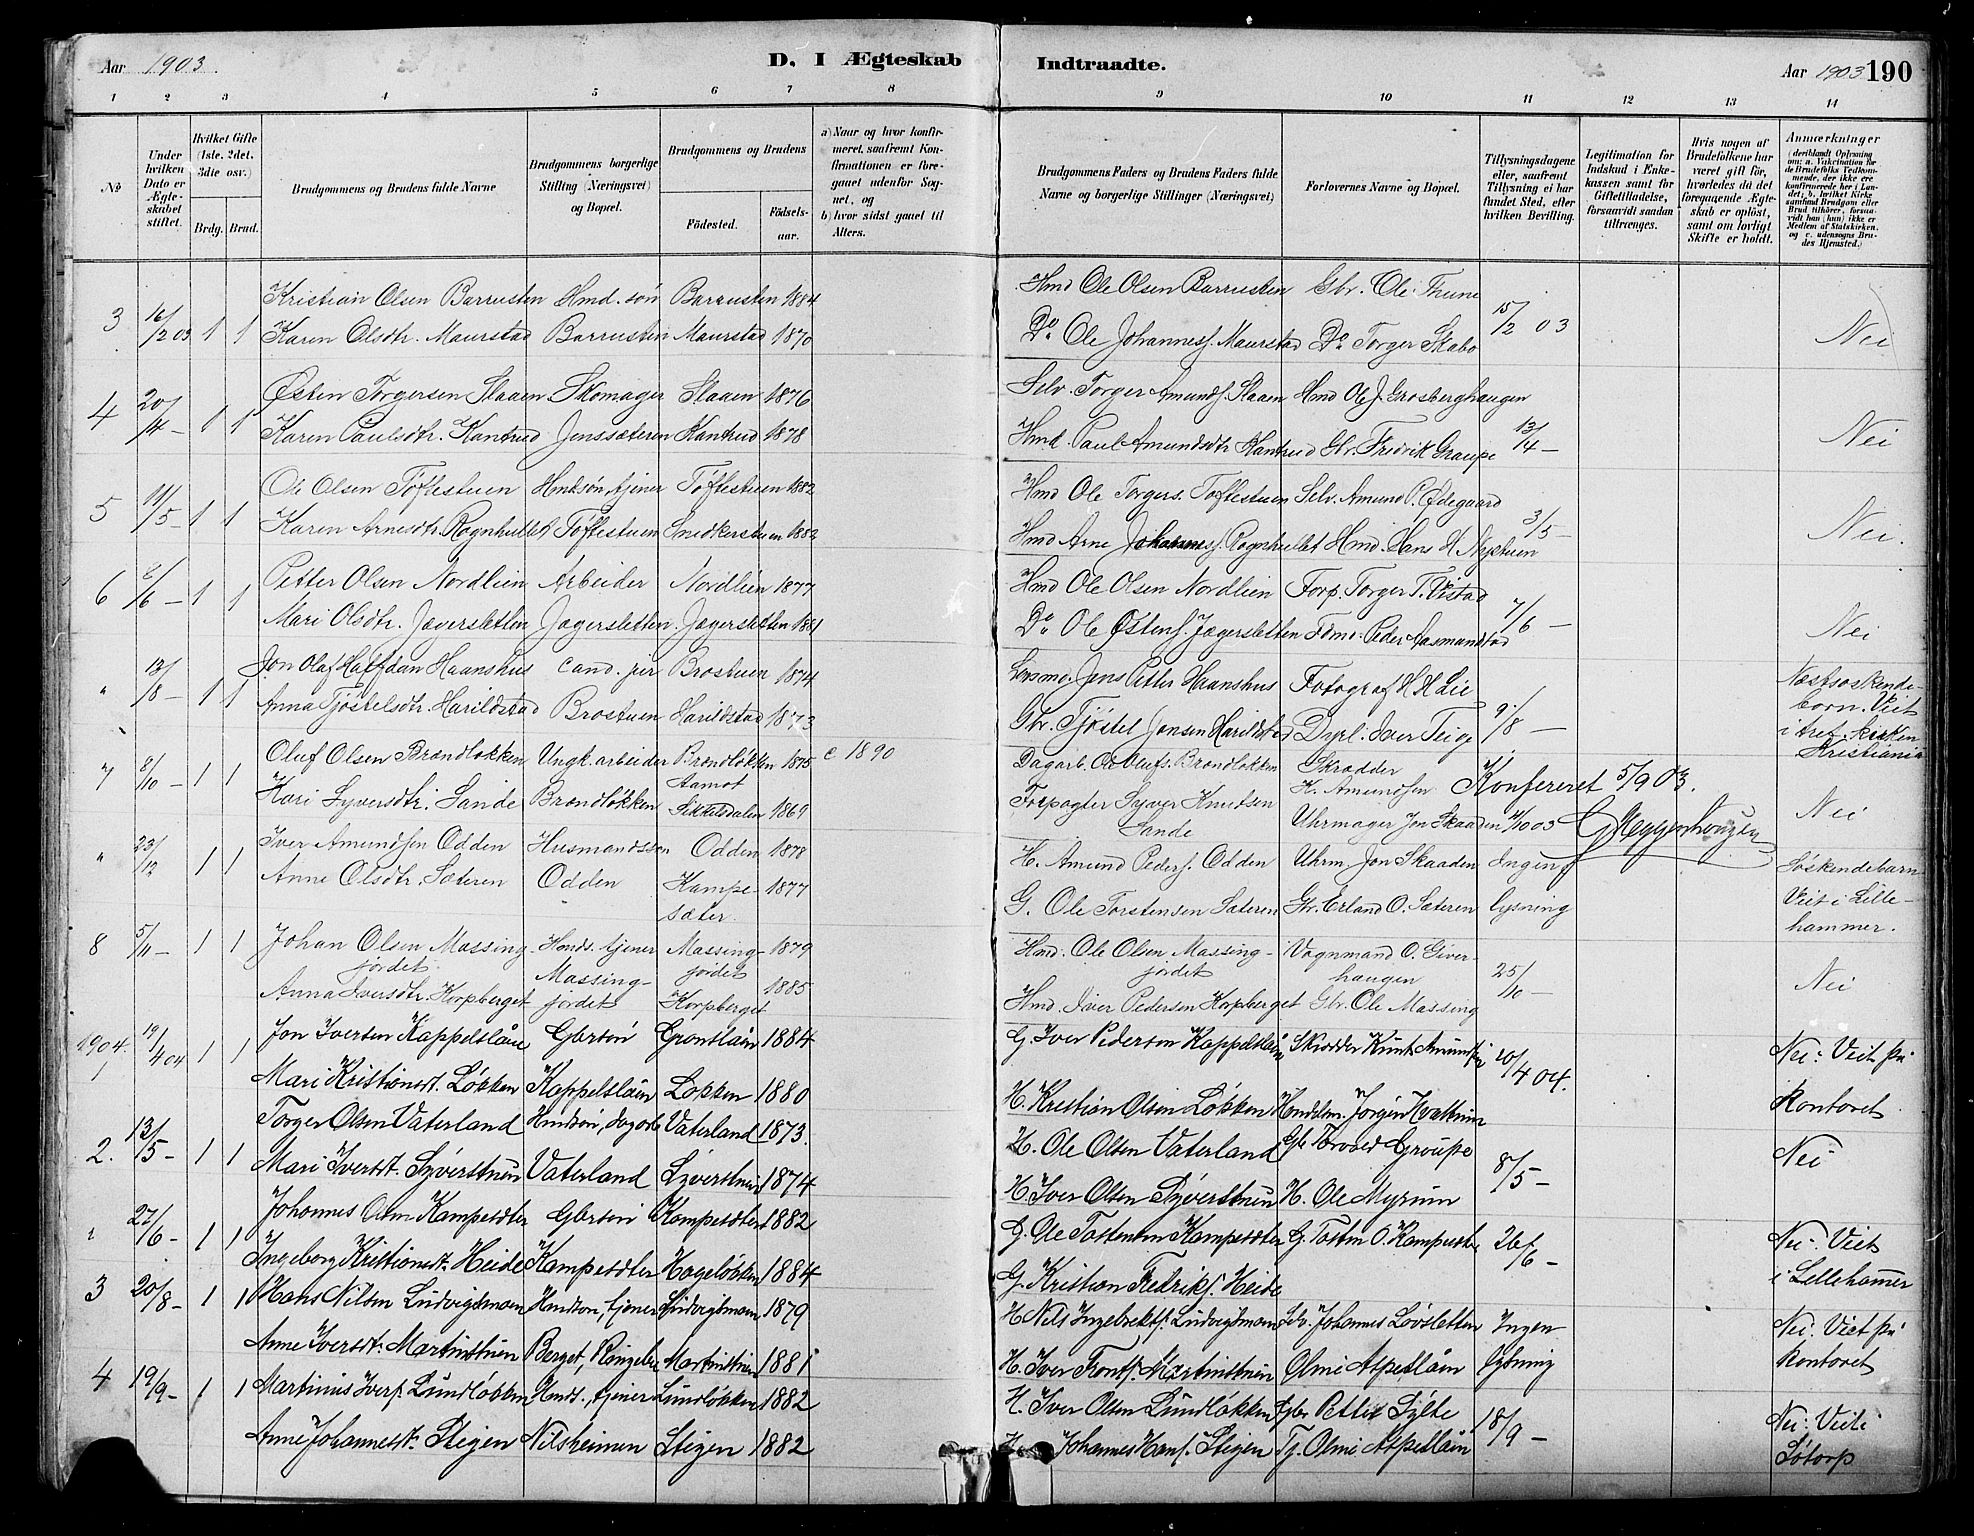 Aar 1903.
D. I Ægteskab Indtraadte.
Aar 1903 190
1 2 3 4 5 6 7 8 9 10 11 12 13 14
No
Under hvilken Dato er Ægteskabet stiftet.
Hvilket Gifte (1ste, 2det, 3die osv.)
Brdg. Brud.
Brudgommens og Brudens fulde Navne
Brudgommens borgerlige Stilling (Næringsvei) og Bopæl.
Brudgommens og Brudens
Fødested. Fødselsaar.
a) Naar og hvor konfirmeret, saafremt Konfirmationen er foregaaet udenfor Sognet, og
b) hvor sidst gaaet til Alters.
Brudgommens Faders og Brudens Faders fulde Navne og borgerlige Stillinger (Næringsvei)
Forlovernes Navne og Bopæl.
Tillysningsdagene eller, saafremt Tillysning ei har fundet Sted, efter hvilken Bevilling.
Legitimation for Indskud i Enkekassen samt for Giftetilladelse, forsaavidt saadan tiltrænges.
Hvis nogen af Brudefolkene har været gift før, hvorledes da det foregaaende Ægteskab er opløst, samt om lovligt Skifte er holdt.
Anmærkninger (deriblandt Oplysning om: a. Vakcination for de Brudefolks Vedkommende, der ikke ere konfirmerede her i Landet; b. hvilket Kirkesamfund Brudgom eller Brud tilhører, forsaavidt han (hun) ikke er Medlem af Statskirken, og c. udensogns Brudes Hjemsted.)
3 16/2 03 1 1 Kristian Olsen Barrusten Hmd. søn Barrusten 1884 Hmd Ole Olsen Barrusten Gbr. Ole Thune 15/2 03
Karen Olsdtr. Maurstad Barrusten Maurstad 1870 Do. Ole Johanness. Maurstad Do Torger Skabo Nei
4 20/14 - 1 1 Østen Torgersen Slaaen Skomager Slaaen 1876 Selv. Torger Amunds. Slaaen Hmd Ole J. Grosberghaugen
Karen Paulsdtr. Kantrud Jonssæteren Kantrud 1878 Hmd. Paul Amundsdtr Kantrud Gbr. Fredrik Graupe 13/14 - Nei
5 11/5 - 1 1 Ole Olsen Toftestuen Hmdsøn, tjener Toftestuen 1882 Hmd Ole Torgers. Toftestuen Selv. Amund P. Ødegaard
Karen Arnesdtr. Rognhullet Toftestuen Snedkerstuen 1882 Hmd Arne Johanness. Rognhullet Hmd. Hans H Nystuen 3/5 - Nei.
6 2/6 - 1 1 Petter Olsen Nordlien Arbeider Nordlien 1877 Hmd Ole Olsen Nordlien Forp. Torger T. Vistad
Mari Olsdtr. Jægersletten Jægersletten Jægersletten 1881 Do. Ole Østens. Jægersletten Fdmd. Peder Aasmundstad 7/6 - Nei
" 12/8 - 1 1 Jon Olaf Halfdan Haanshus cand. jur Brostuen 1874 Lensmd. Jens Petter Haanshus Fotograf H H Lie Næstsøskende-
Anna Tjøstelsdtr. Harildstad Brostuen Harildstad 1873 Gbr. Tjøstel Jonsen Harildstad Dyrl. Iver Teige 9/8 - børn. Viet
i Aret. kirken
Kristiania
7 2/10 - 1 1 Oluf Olsen Brændløkken Ungk. arbeider Brændløkken 1875 c 1890 Dagarb. Ole Olufs. Brændløkken Skrædder
Aamot K. Amundsen Konfereret 5/9 03.
Kari Syversdtr. Sande Brændløkken Sikkelsdalen 1869 Forpagter Syver Knutsen Sande Uhrmager Jon Skaaden 4/10 03 Nei
" 23/12 1 1 Iver Amundsen Odden Husmandssøn Odden 1878 H. Amund Peders. Odden Uhrm Jon Skaaden Ingen Søskendebarn
Anne Olsdtr. Sæteren Odden Kampesæter 1877 G. Ole Torstensen Sæteren Gbr. Erland O. Sæteren lysning Viet i Lillehammer.
8 5/11 - 1 1 Johan Olsen Massingjordet Hmds. tjener Massingjordet 1879 Hmd. Ole Olsen Massingjordet Vognmand O. Giverhaugen 25/10 -
Anna Iversdtr. Korpberget Massingjordet Korpberget 1885 Hmd. Iver Pedersen Korpberget Gbr. Ole Massing Nei
1904. 1 19/4 04 1 1 Jon Iversen Kappelslåen Gbrsøn Gronslåin 1884 G. Iver Pedersen Kappelslåin Skrædder Knut Amundsen 10/4 04. Nei: Viet på
Mari Kristiansdt. Løkken Kappelslåin Løkken 1880 H. Kristian Olsen Løkken Handelsm. Jørgen Kontoret.
2. 13/5 - 1 1 Torger Olsen Vaterland Hmdsøn, dagarb Vaterland 1873. H. Ole Olsen Vaterland Gbr Torvald Groupe
Mari Iversdt. Syverstuen Vaterland Syverstuen 1874 H. Iver Olsen Syverstuen H. Ole Myrum 8/5 - Nei
" 27/6 - 1 1 Johannes Olsen Kampesæter Gbrsøn Kampesæter 1882 G. Ole Tostensen Kampesæter G. Tosten O. Kampesæter 26/6 - Nei. Viet
Ingeborg Kristiansdt. Heide Kampesæter Hageløkken 1884 G. Kristian Fredriks. Heide i Lillehamer
3 20/8 - 1 1 Hans Nilsen Ludvigsmoen Hmdsøn, tjener Ludvigsmoen 1879 H Nils Ingebrekts. Ludvigsmoen Selv. Johannes Løvsletten Ingen Nei. Viet på
Anne Iversdt. Martinstuen Berget, Ringebu Martinstuen 1881 H. Iver Fronts. Martinstuen Olmi Aspeslåin lysning kontoret
4 19/9 - 1 1 Martinius Ivers. Lundløkken Hmds., tjener Lundløkken 1882 H. Iver Olsen Lundløkken Gbr Petter Sylte 18/9 - Nei: Viet i
Anne Johannesdt. Stigen Nilsheimen Stigen 1882 H. Johannes Hans. Stigen Tj. Olmi Aspeslåin Sødorp